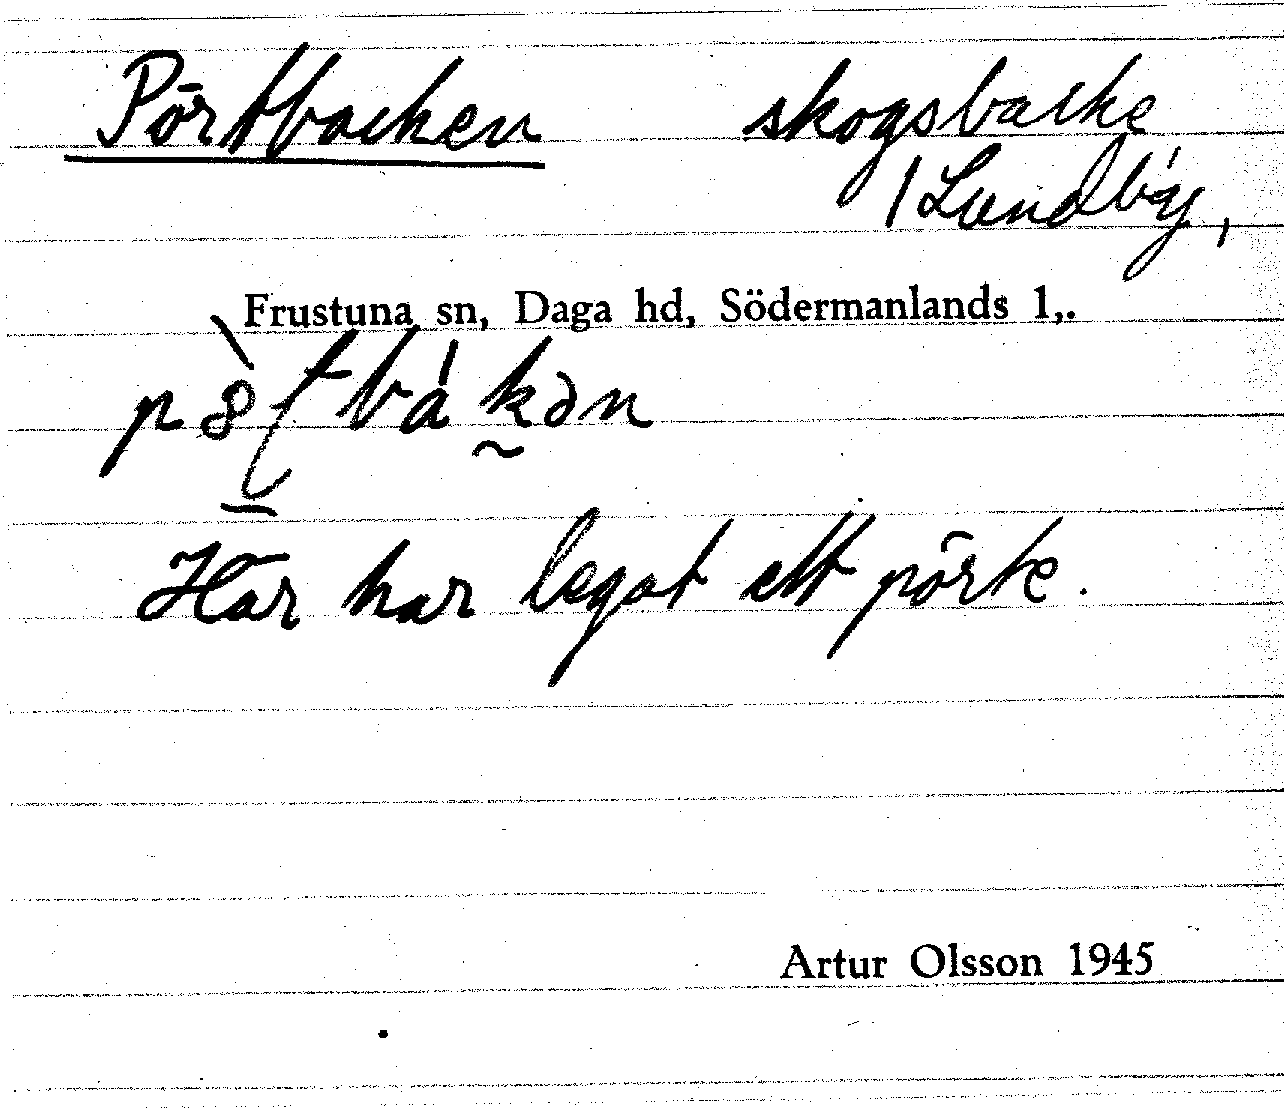 Pörtbacken skogsbacke
/ Lundby,
Frustuna sn, Daga hd, Södermanlands l,.
Här har legat ett pörte.
Artur Olsson 1945